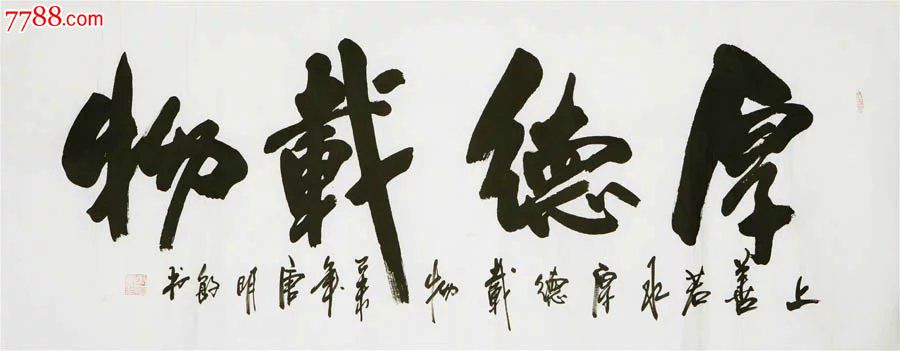 7788.com
厚德載物
上善若水厚德載物年唐明书